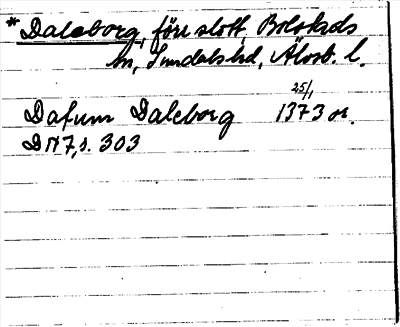 *Daleborg, förr slott, Bolstads
sn, Sundals hd, Älvsb. l.
25/1
Datum Daleborg 1373 or.
DN 7, s. 303